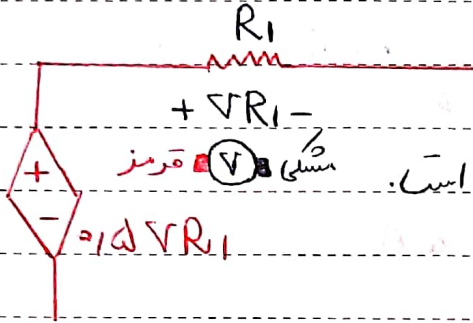 R1
+ VR1 -
قرمز V مشکی
است.
+
-
۰,۵ VR1